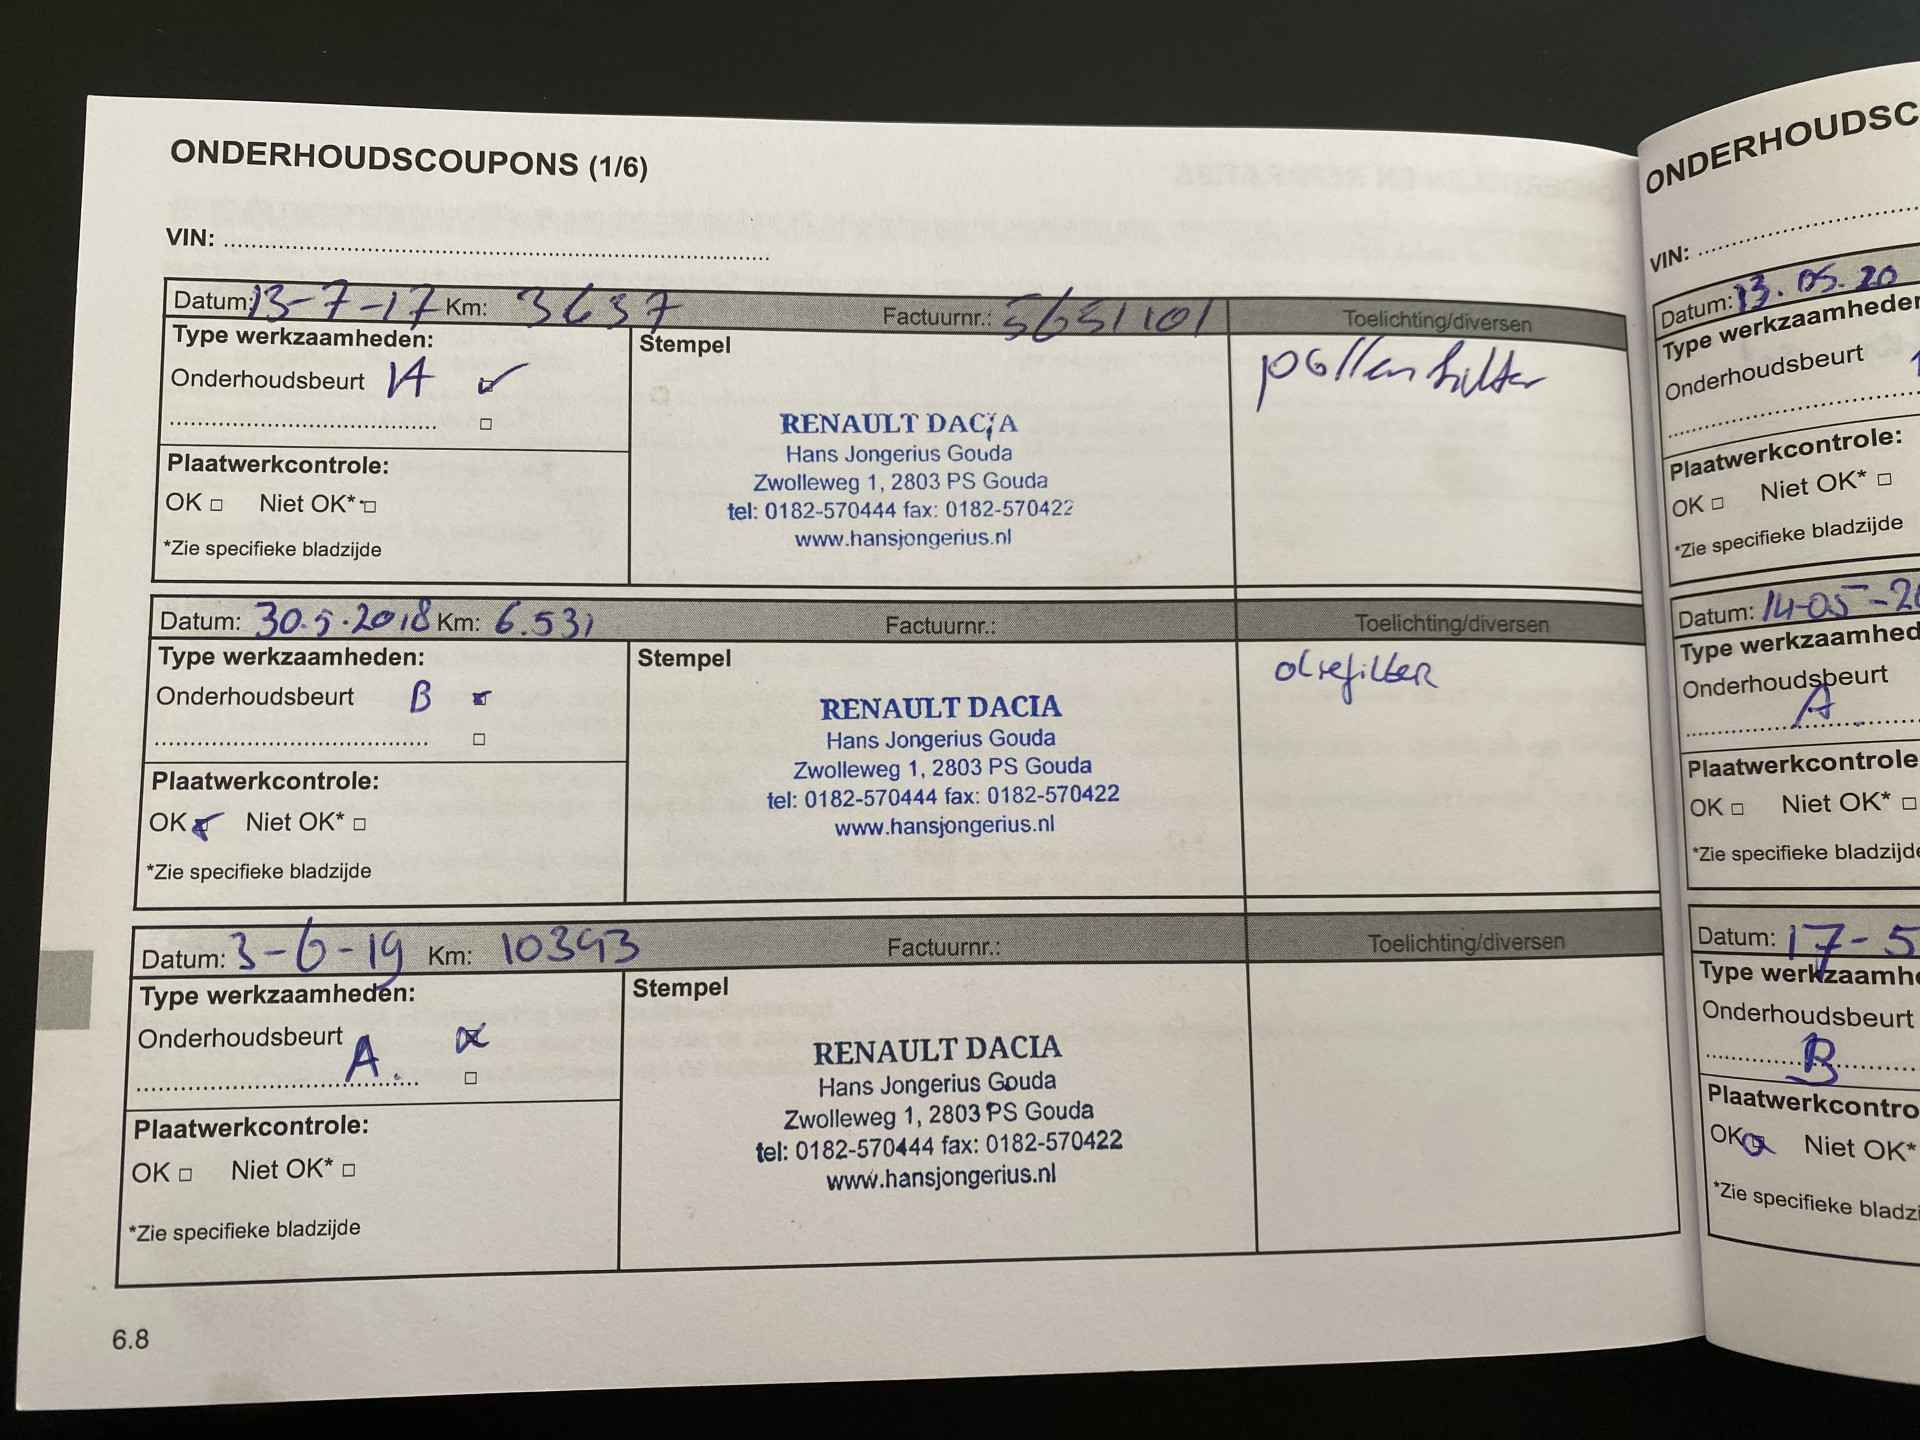 ONDERHOUDSCOUPONS (1/6)
VIN:
Datum: 13-7-17 Km: 3637 Factuurnr.: 5651101 Toelichting/diversen
Type werkzaamheden:
Stempel
pollenfilter
Onderhoudsbeurt A
RENAULT DACIA
Hans Jongerius Gouda
Zwolleweg 1, 2803 PS Gouda
tel: 0182-570444 fax: 0182-570422
www.hansjongerius.nl
Plaatwerkcontrole:
OK Niet OK*
*Zie specifieke bladzijde
Datum: 30.5.2018 Km: 6.531 Factuurnr.: Toelichting/diversen
Type werkzaamheden:
Stempel
oliefilter
Onderhoudsbeurt B
RENAULT DACIA
Hans Jongerius Gouda
Zwolleweg 1, 2803 PS Gouda
tel: 0182-570444 fax: 0182-570422
www.hansjongerius.nl
Plaatwerkcontrole:
OK Niet OK*
*Zie specifieke bladzijde
Datum: 3-6-19 Km: 10393 Factuurnr.: Toelichting/diversen
Type werkzaamheden:
Stempel
Onderhoudsbeurt
A.
RENAULT DACIA
Hans Jongerius Gouda
Zwolleweg 1, 2803 PS Gouda
tel: 0182-570444 fax: 0182-570422
www.hansjongerius.nl
Plaatwerkcontrole:
OK Niet OK*
*Zie specifieke bladzijde
6.8
ONDERHOUDSC
VIN:
Datum: 13.05.20
Type werkzaamheden
Onderhoudsbeurt
Plaatwerkcontrole:
OK Niet OK*
*Zie specifieke bladzijde
Datum: 14-05-20
Type werkzaamhed
Onderhoudsbeurt
A
Plaatwerkcontrole
OK Niet OK*
*Zie specifieke bladzijde
Datum: 17-5
Type werkzaamhe
Onderhoudsbeurt
B
Plaatwerkcontro
OK Niet OK*
*Zie specifieke bladzi